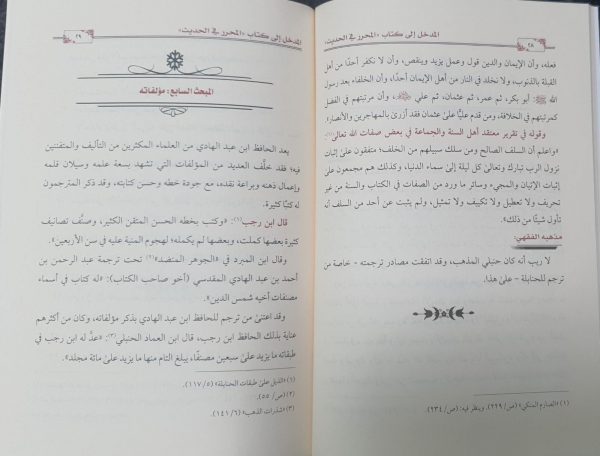 المدخل إلى كتاب «المحرر في الحديث»
٢٨
فعله، وأن الإيمان والدين قول وعمل يزيد وينقص، وأن لا نكفر أحدًا من أهل
القبلة بالذنوب، ولا نخلد في النار من أهل الإيمان أحدًا، وأن الخلفاء بعد رسول
الله ﷺ: أبو بكر، ثم عمر، ثم عثمان، ثم علي، وأن مرتبتهم في الفضل
كمرتبتهم في الخلافة، ومن قدم عليًّا على عثمان فقد أزرى بالمهاجرين والأنصار».
وقوله في تقرير معتقد أهل السنة والجماعة في بعض صفات الله تعالى(١):
«واعلم أن السلف الصالح ومن سلك سبيلهم من الخلف؛ متفقون على إثبات
نزول الرب تبارك وتعالى كل ليلة إلى سماء الدنيا، وكذلك هم مجمعون على
إثبات الإتيان والمجيء، وسائر ما ورد من الصفات في الكتاب والسنة من غير
تحريف ولا تعطيل ولا تكييف ولا تمثيل، ولم يثبت عن أحد من السلف أنه
تأول شيئًا من ذلك».
مذهبه الفقهي:
لا ريب أنه كان حنبلي المذهب، وقد اتفقت مصادر ترجمته - خاصة من
ترجم للحنابلة - على هذا.
(١) «الصارم المنكي» (ص/ ٢٢٩). وينظر فيه: (ص/ ٢٣٤).
المدخل إلى كتاب «المحرر في الحديث»
٢٩
المبحث السابع: مؤلفاته
يعد الحافظ ابن عبد الهادي من العلماء المكثرين من التأليف والمتفننين
فيه؛ فقد خلَّف العديد من المؤلفات التي تشهد بسعة علمه وسيلان قلمه
وإعمال ذهنه وبراعة نقده، مع جودة خطه وحسن كتابته، وقد ذكر المترجمون
له كتبًا كثيرة.
قال ابن رجب(١): «وكتب بخطه الحسن المتقن الكثير، وصنَّف تصانيف
كثيرة بعضها كملت، وبعضها لم يكمله؛ لهجوم المنية عليه في سن الأربعين».
وقال ابن المبرد في «الجوهر المنضد»(٢) تحت ترجمة عبد الرحمن بن
أحمد بن عبد الهادي المقدسي (أخو صاحب الكتاب): «له كتاب في أسماء
مصنفات أخيه شمس الدين».
وقد اعتنى من ترجم للحافظ ابن عبد الهادي بذكر مؤلفاته، وكان من أكثرهم
عناية بذلك الحافظ ابن رجب، قال ابن العماد الحنبلي(٣): «عدَّ له ابن رجب في
طبقاته ما يزيد على سبعين مصنفًا، يبلغ التام منها ما يزيد على مائة مجلد».
(١) «الذيل على طبقات الحنابلة» (٥/ ١١٧).
(٢) (ص/ ٥٥).
(٣) «شذرات الذهب» (٦/ ١٤١).